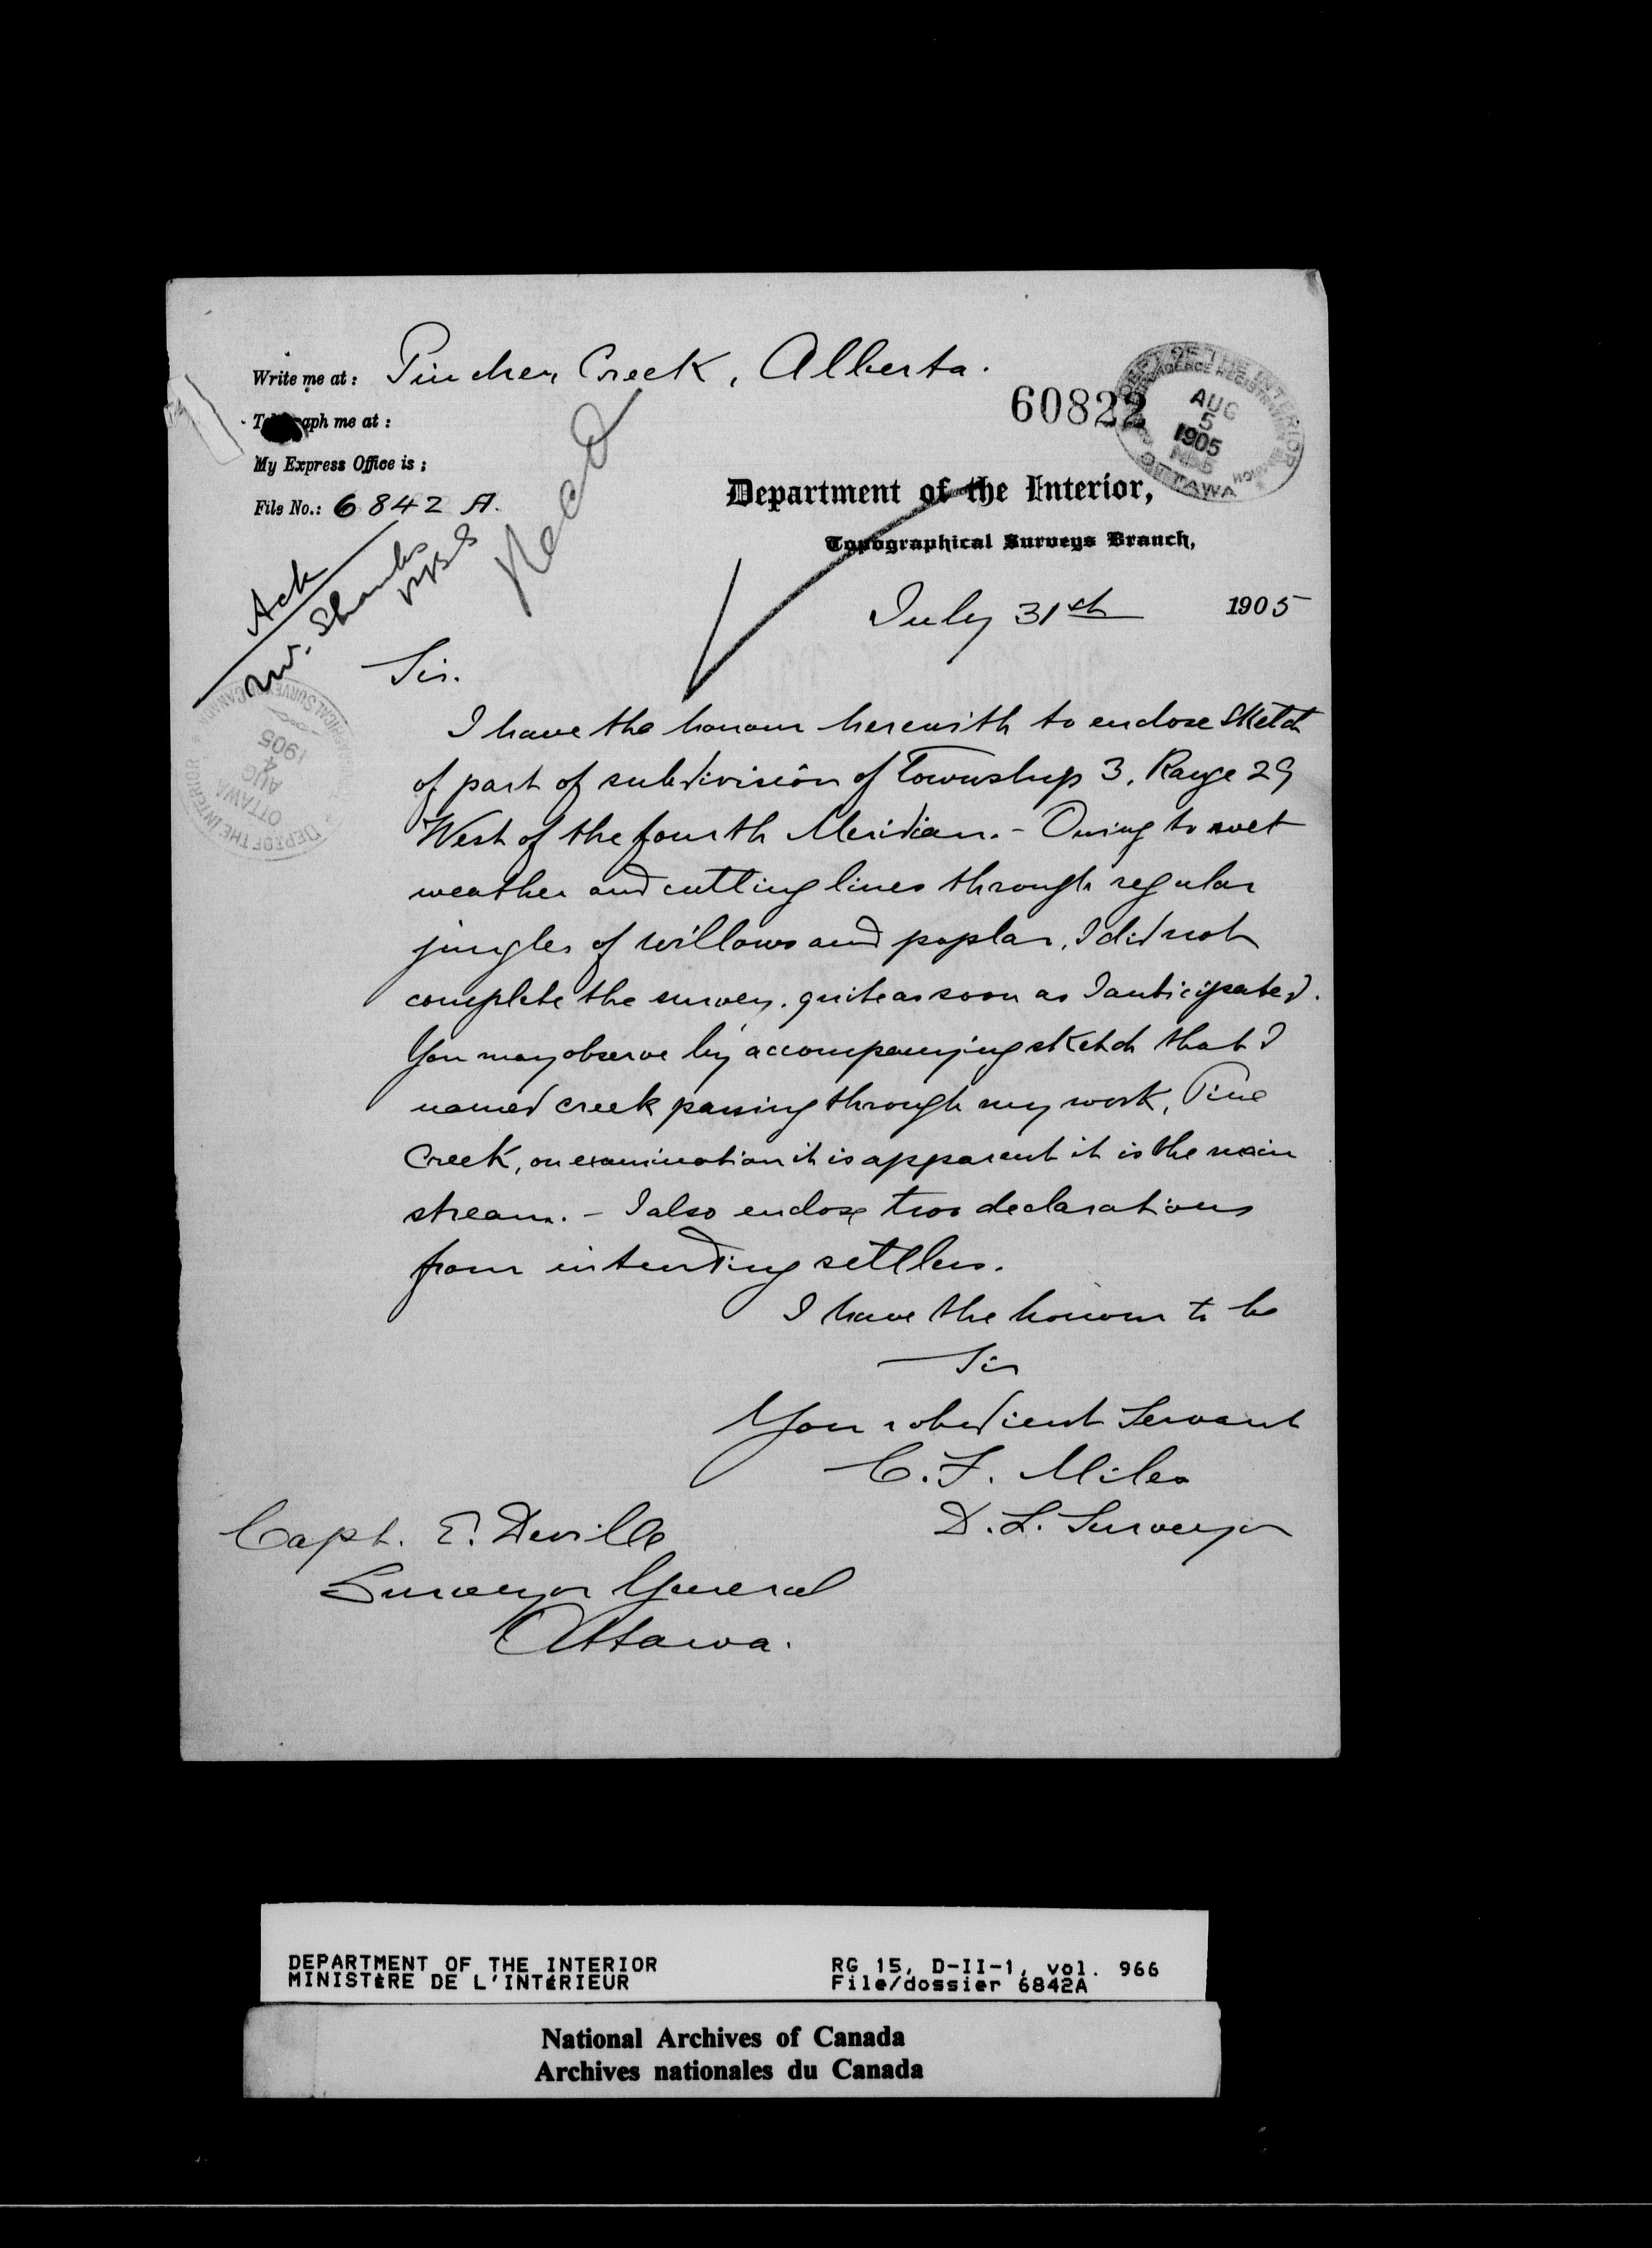 Write me at: Pincher Creek, Alberta.
60822
DEPT OF THE INTERIOR
AUG
5
1905
OTTAWA
Telegraph me at:
My Express Office is:
File No.: 6842 A.
Department of the Interior,
Topographical Surveys Branch,
Ack
Mr. Shanks
Recd
July 31st 1905
DEPT OF THE INTERIOR
OTTAWA
AUG
4
1905
Sir.
I have the honour herewith to enclose Sketch
of part of subdivision of Township 3, Range 29
West of the fourth Meridian. - Owing to wet
weather and cutting lines through regular
jungles of willows and poplar, I did not
complete the survey, quite as soon as I anticipated.
You may observe by accompanying sketch that I
named creek passing through my work, Pine
Creek, on examination it is apparent it is the main
stream. - I also enclose two declarations
from intending settlers.
I have the honour to be
Sir
Your obedient Servant
C. F. Miles
D. L. Surveyor
Capt. E. Deville
Surveyor General
Ottawa.
DEPARTMENT OF THE INTERIOR
MINISTÈRE DE L'INTÉRIEUR
RG 15, D-II-1, vol. 966
File/dossier 6842A
National Archives of Canada
Archives nationales du Canada